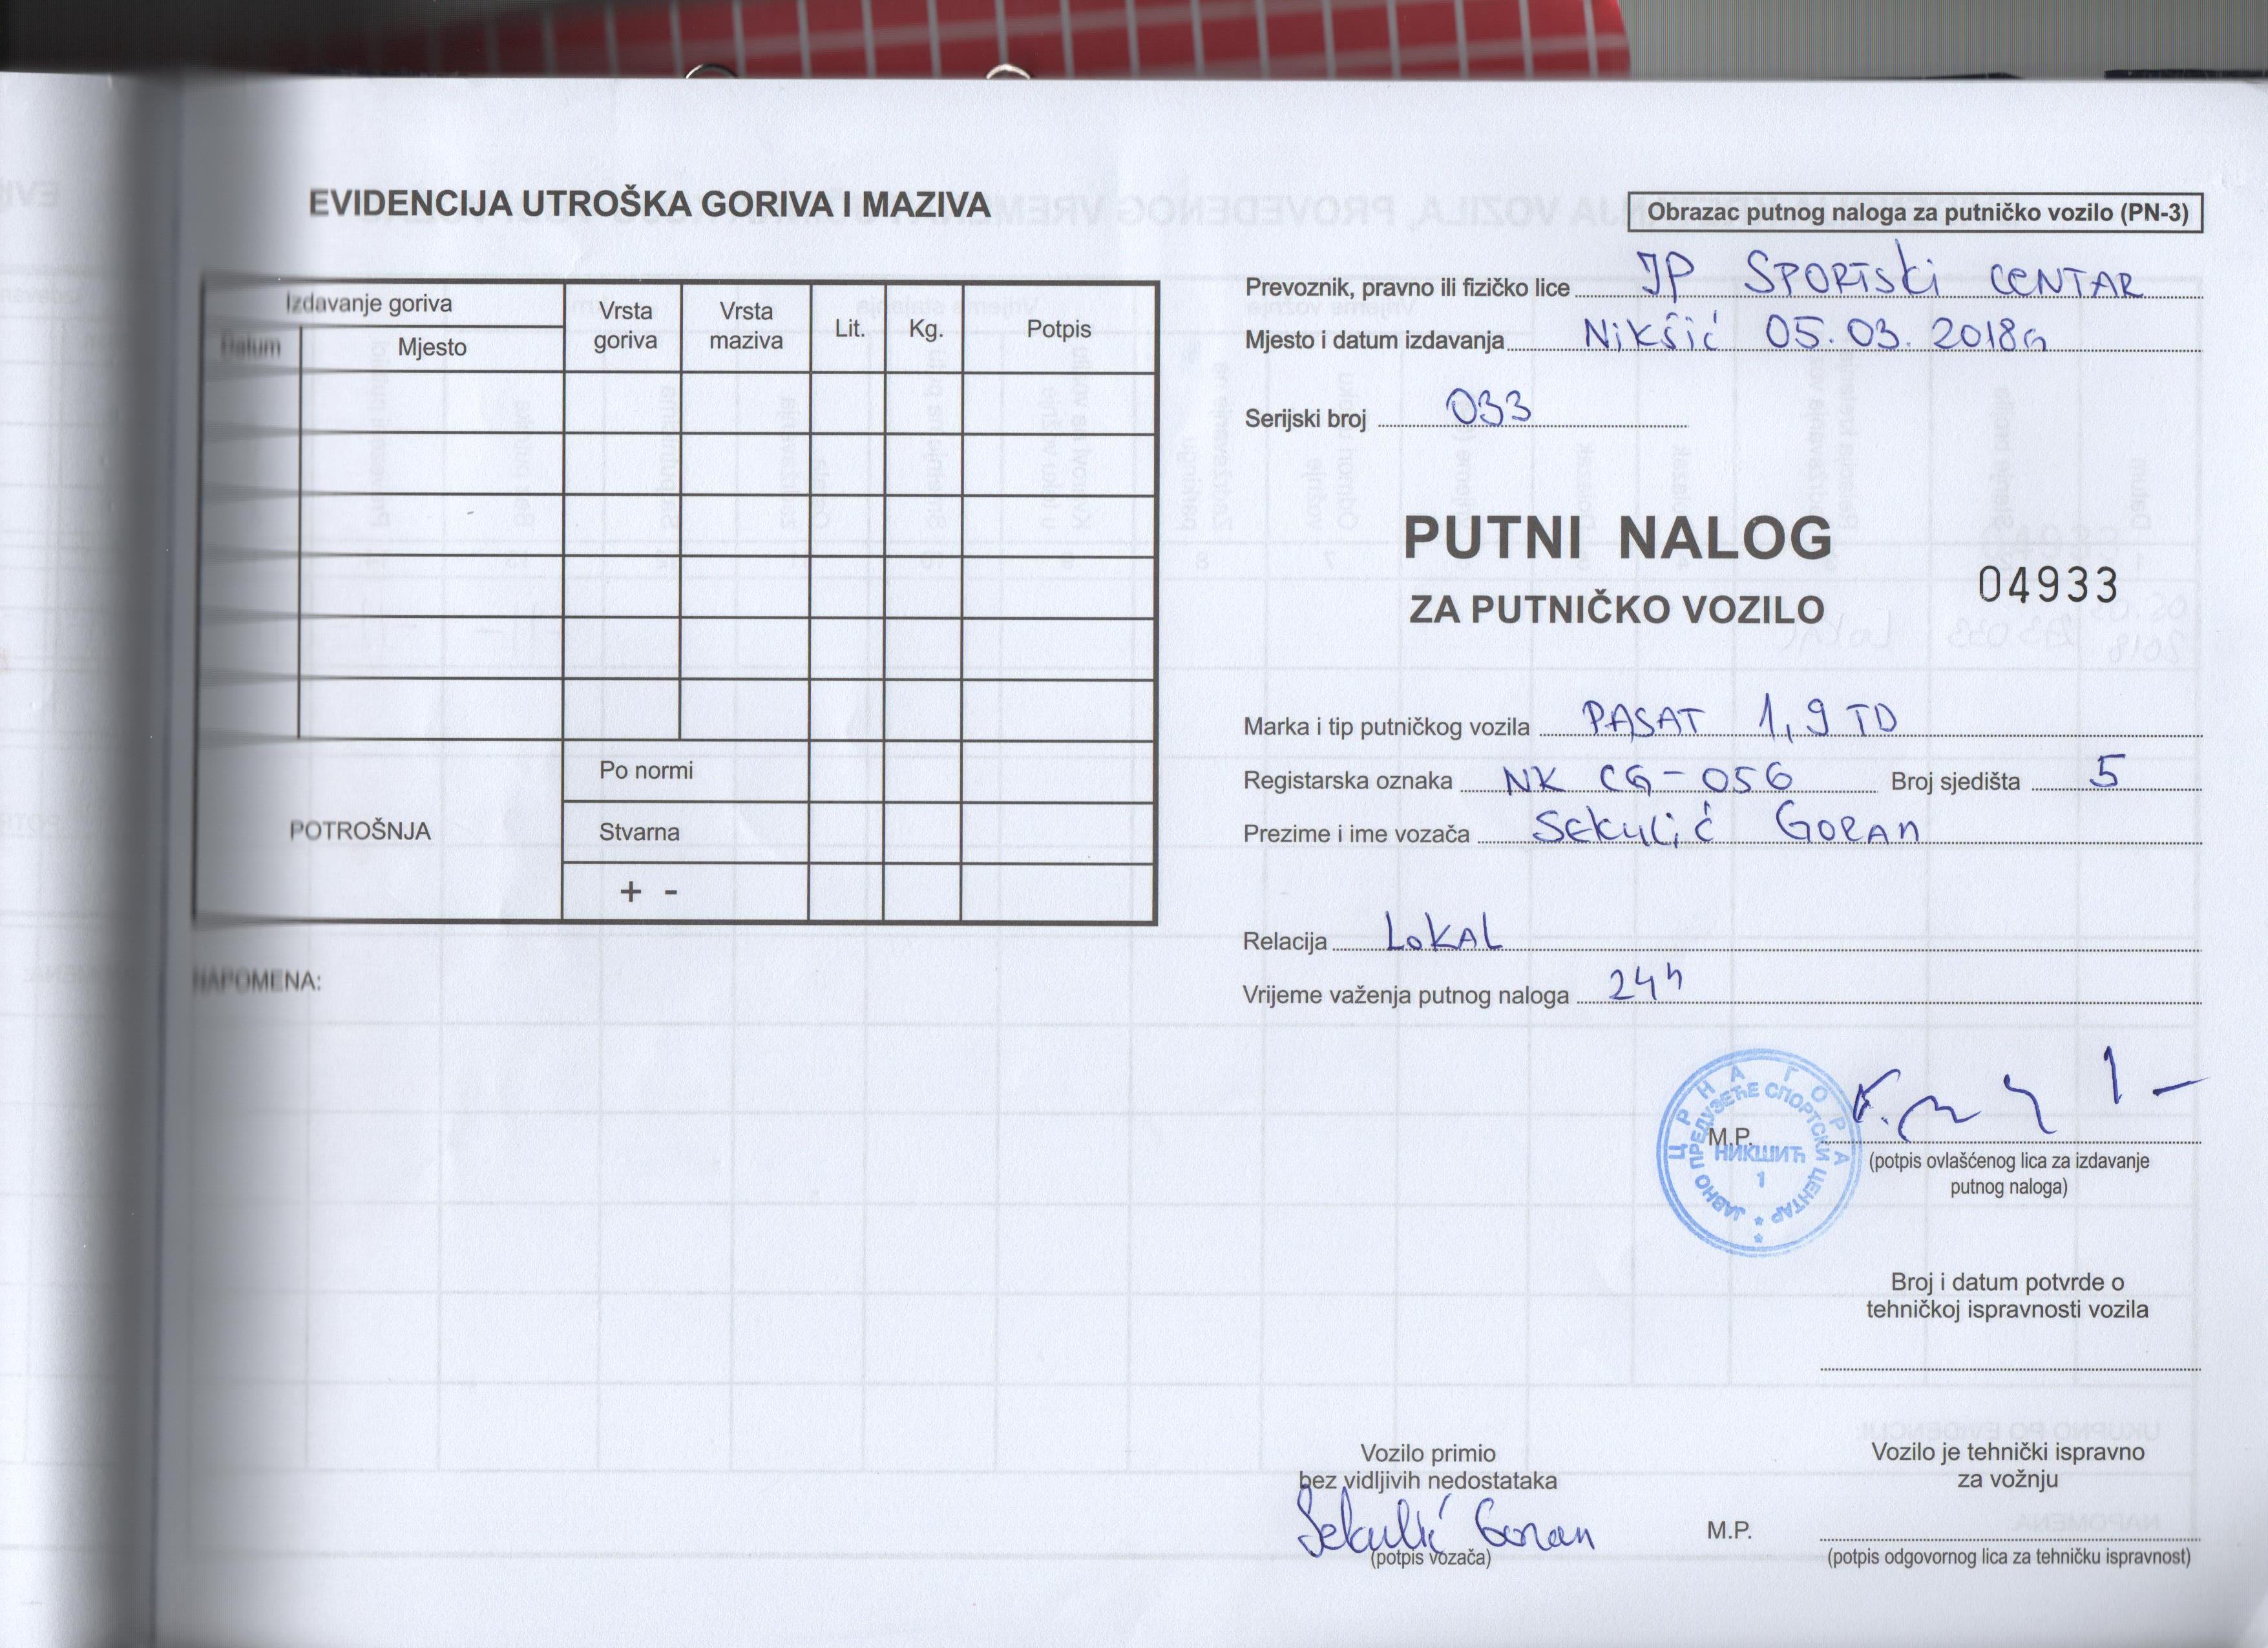 EVIDENCIJA UTROŠKA GORIVA I MAZIVA
Izdavanje goriva
Datum
Mjesto
Vrsta goriva
Vrsta maziva
Lit.
Kg.
Potpis
POTROŠNJA
Po normi
Stvarna
+ -
NAPOMENA:
Obrazac putnog naloga za putničko vozilo (PN-3)
Prevoznik, pravno ili fizičko lice JP SPORTSKI CENTAR
Mjesto i datum izdavanja Nikšić 05.03.2018G
Serijski broj 033
PUTNI NALOG
04933
ZA PUTNIČKO VOZILO
Marka i tip putničkog vozila PASAT 1,9 TD
Registarska oznaka NK CG-056 Broj sjedišta 5
Prezime i ime vozača Sekulić Goran
Relacija LOKAL
Vrijeme važenja putnog naloga 24h
ЦРНА ГОРА
ЈАВНО ПРЕДУЗЕЋЕ СПОРТСКИ ЦЕНТАР
НИКШИЋ
1
M.P.
(potpis ovlašćenog lica za izdavanje
putnog naloga)
Broj i datum potvrde o
tehničkoj ispravnosti vozila
Vozilo primio
bez vidljivih nedostataka
Sekulić Goran
(potpis vozača)
Vozilo je tehnički ispravno
za vožnju
M.P.
(potpis odgovornog lica za tehničku ispravnost)